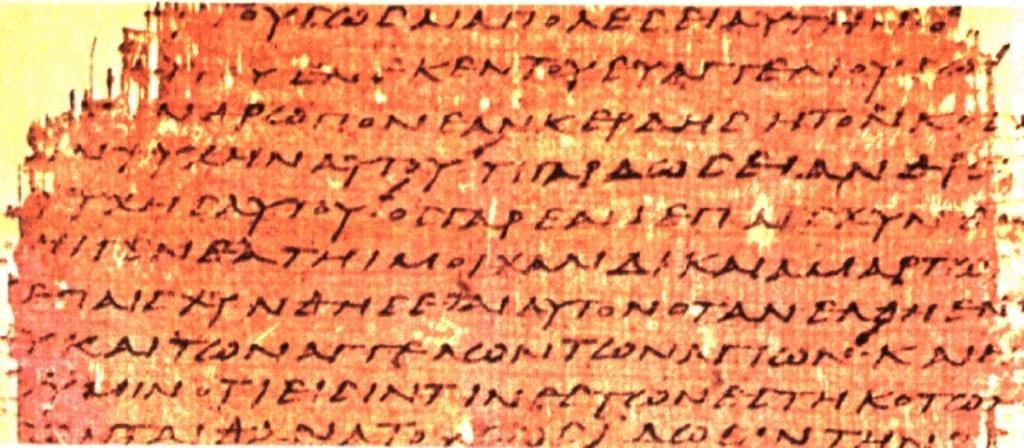 ΤΟΥϹΩϹΑΙΑΠΟΛΕϹΕΙΑΥΤΗΝΟϹ
ΕΝΕΚΕΝΤΟΥΕΥΑΓΓΕΛΙΟΥϹΩ
ΝΘΡΩΠΟΝΕΑΝΚΕΡΔΗϹΗΤΟΝΚ
ΗΝΨΥΧΗΝΑΥΤΟΥΤΙΓΑΡΔΩϹΕΙΑΝΘΡ
ΨΥΧΗϹΑΥΤΟΥΟϹΓΑΡΕΑΝΕΠΑΙϹΧΥΝ
ΤΗΙΓΕΝΕΑΤΗΙΜΟΙΧΑΛΙΔΙΚΑΙΑΜΑΡΤΩ
ΕΠΑΙϹΧΥΝΘΗϹΕΤΑΙΑΥΤΟΝΟΤΑΝΕΛΘΗΕΝ
ΥΚΑΙΤΩΝΑΓΓΕΛΩΝΤΩΝΑΓΙΩΝ·ΚΑΙΕ
ΥΜΙΝΟΤΙΕΙϹΙΝΤΙΝΕϹΤΩΝΕϹΤΗΚΟΤΩ
ΤΑΙΘΑΝΑΤΟΥΕΩϹΕΙΔΩϹΙΝΤΗ